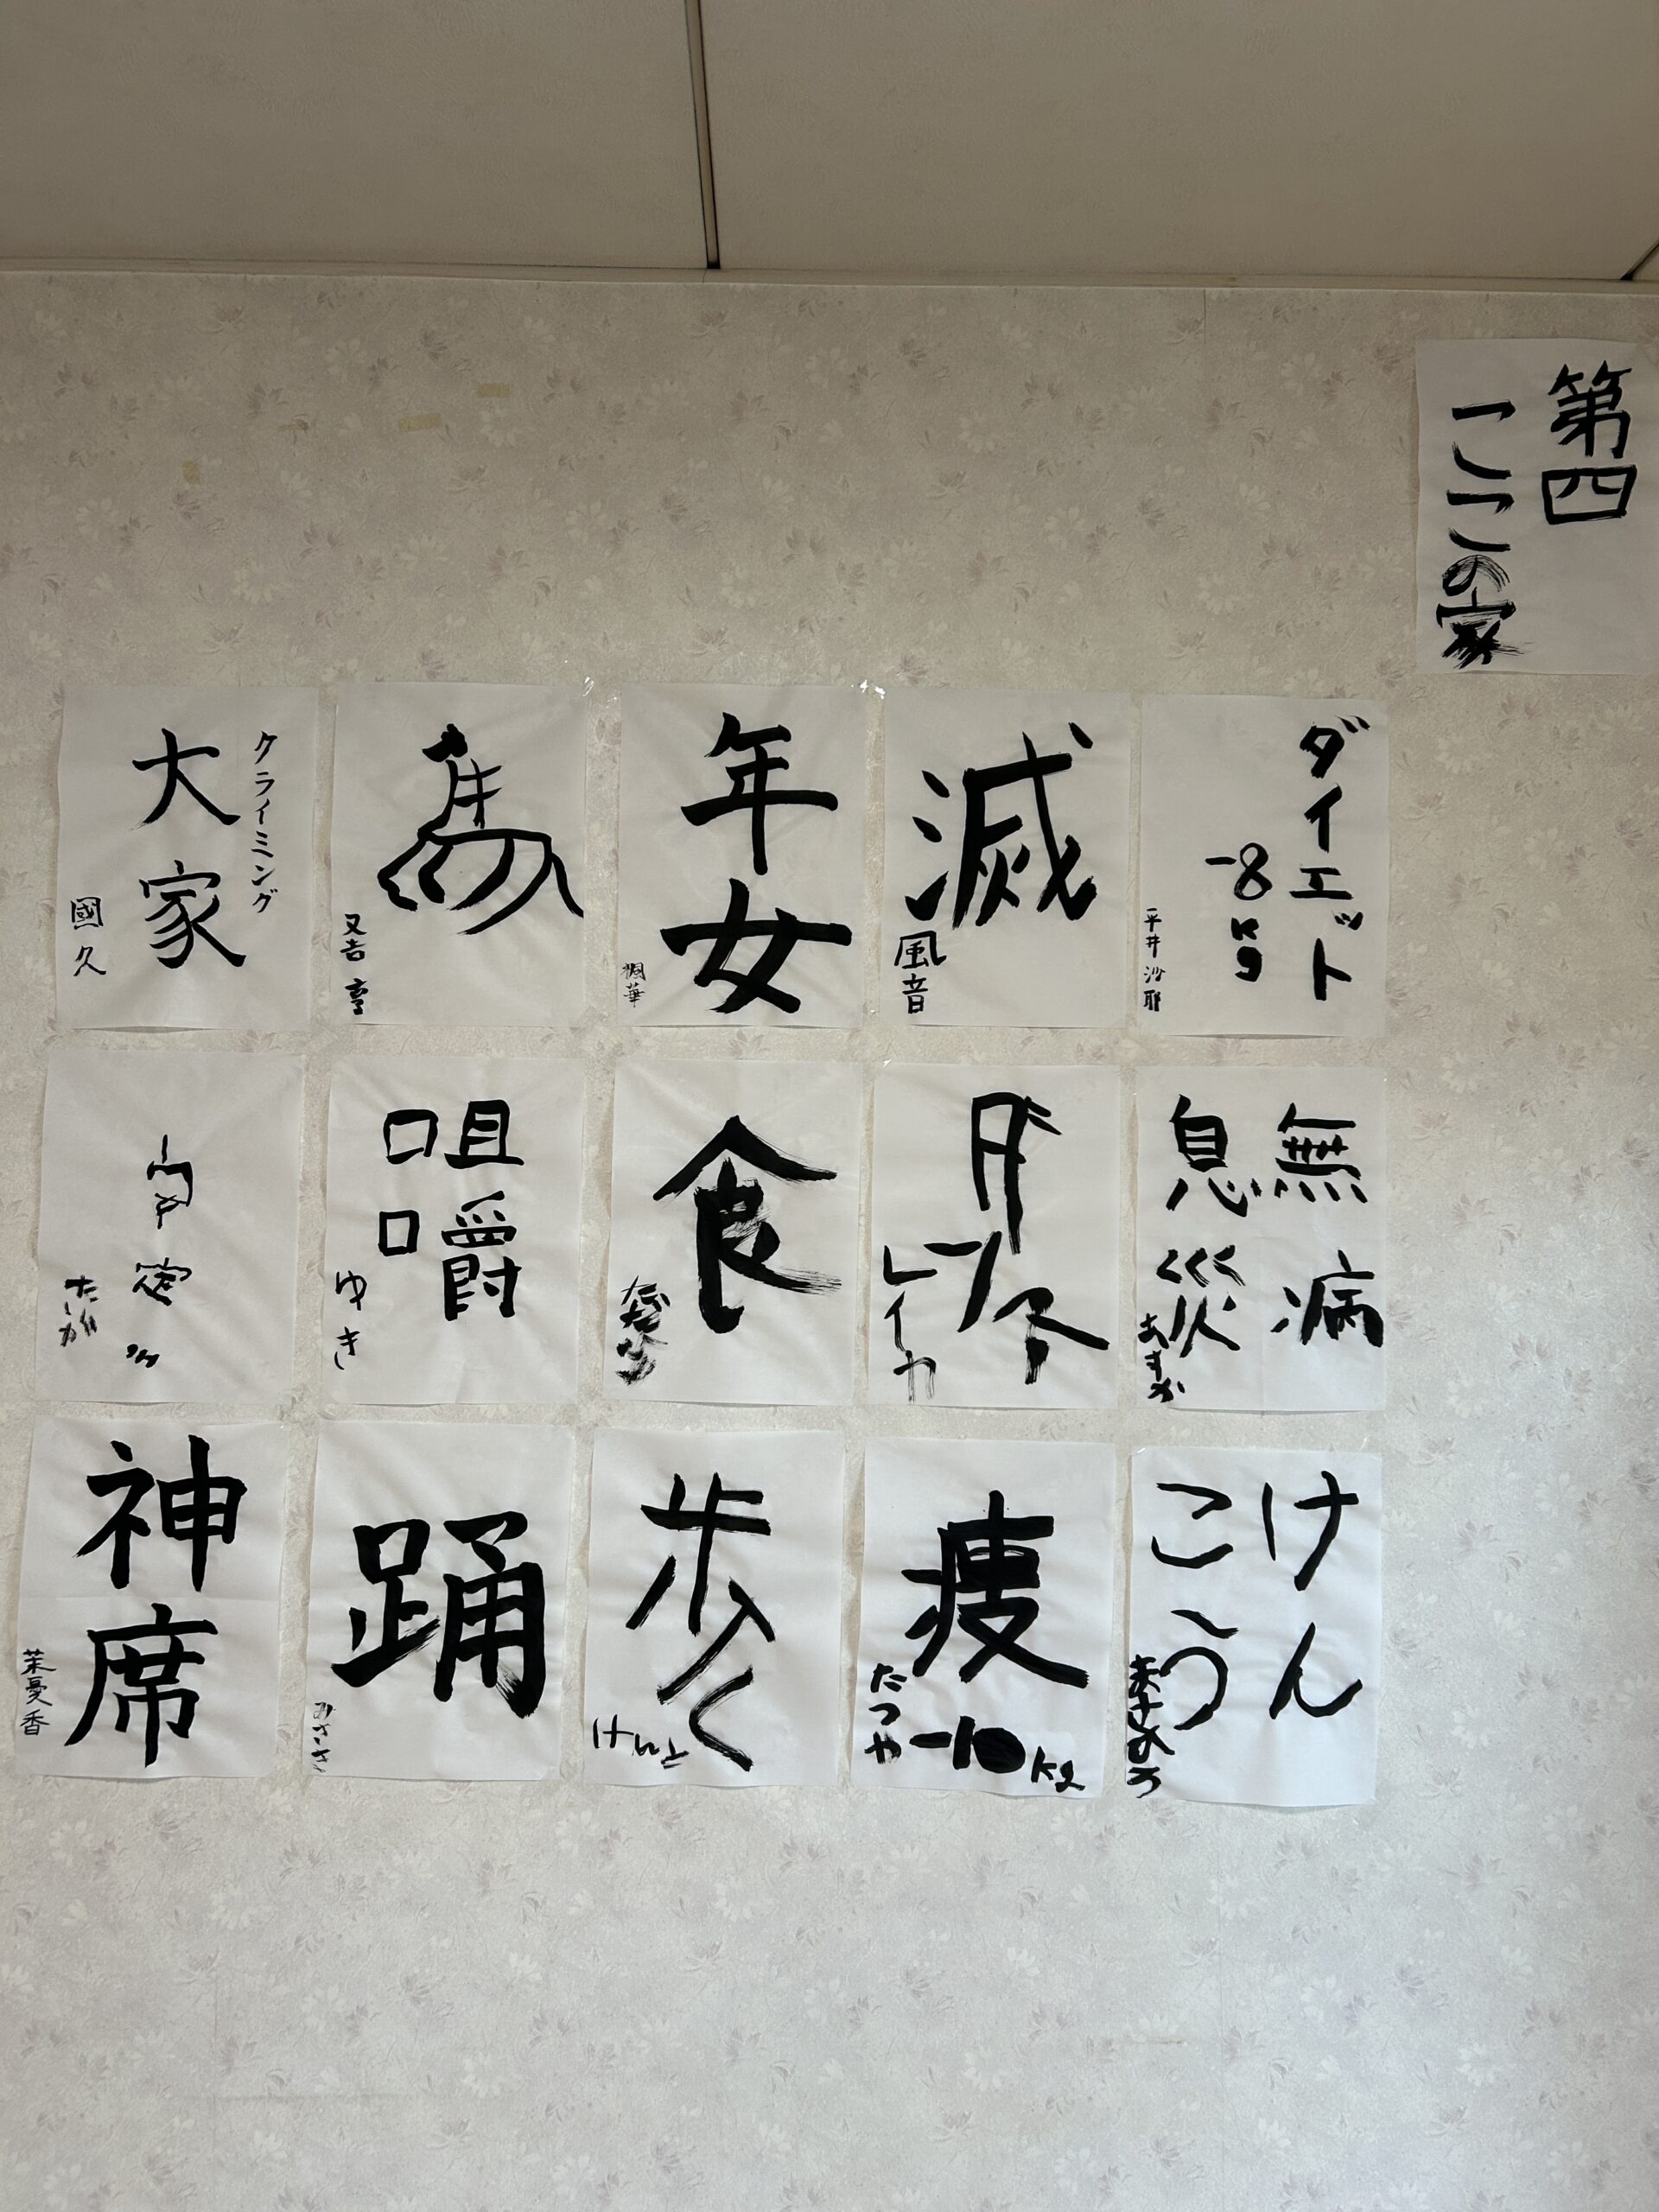 第四
こころの家
ダイエット
-8kg
平井沙耶
滅
風音
年女
桐華
馬
又吉 亨
クライミング
大家
國久
無病
息災
あすか
レイカ
食
咀嚼
ゆき
たいが
けん
こう
痩
-10kg
たつや
歩く
けんと
踊
みさき
神席
茉憂香